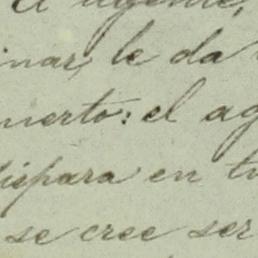 El agente,
inar, le da
muerto: el ag
dispara en tu
se cree ser